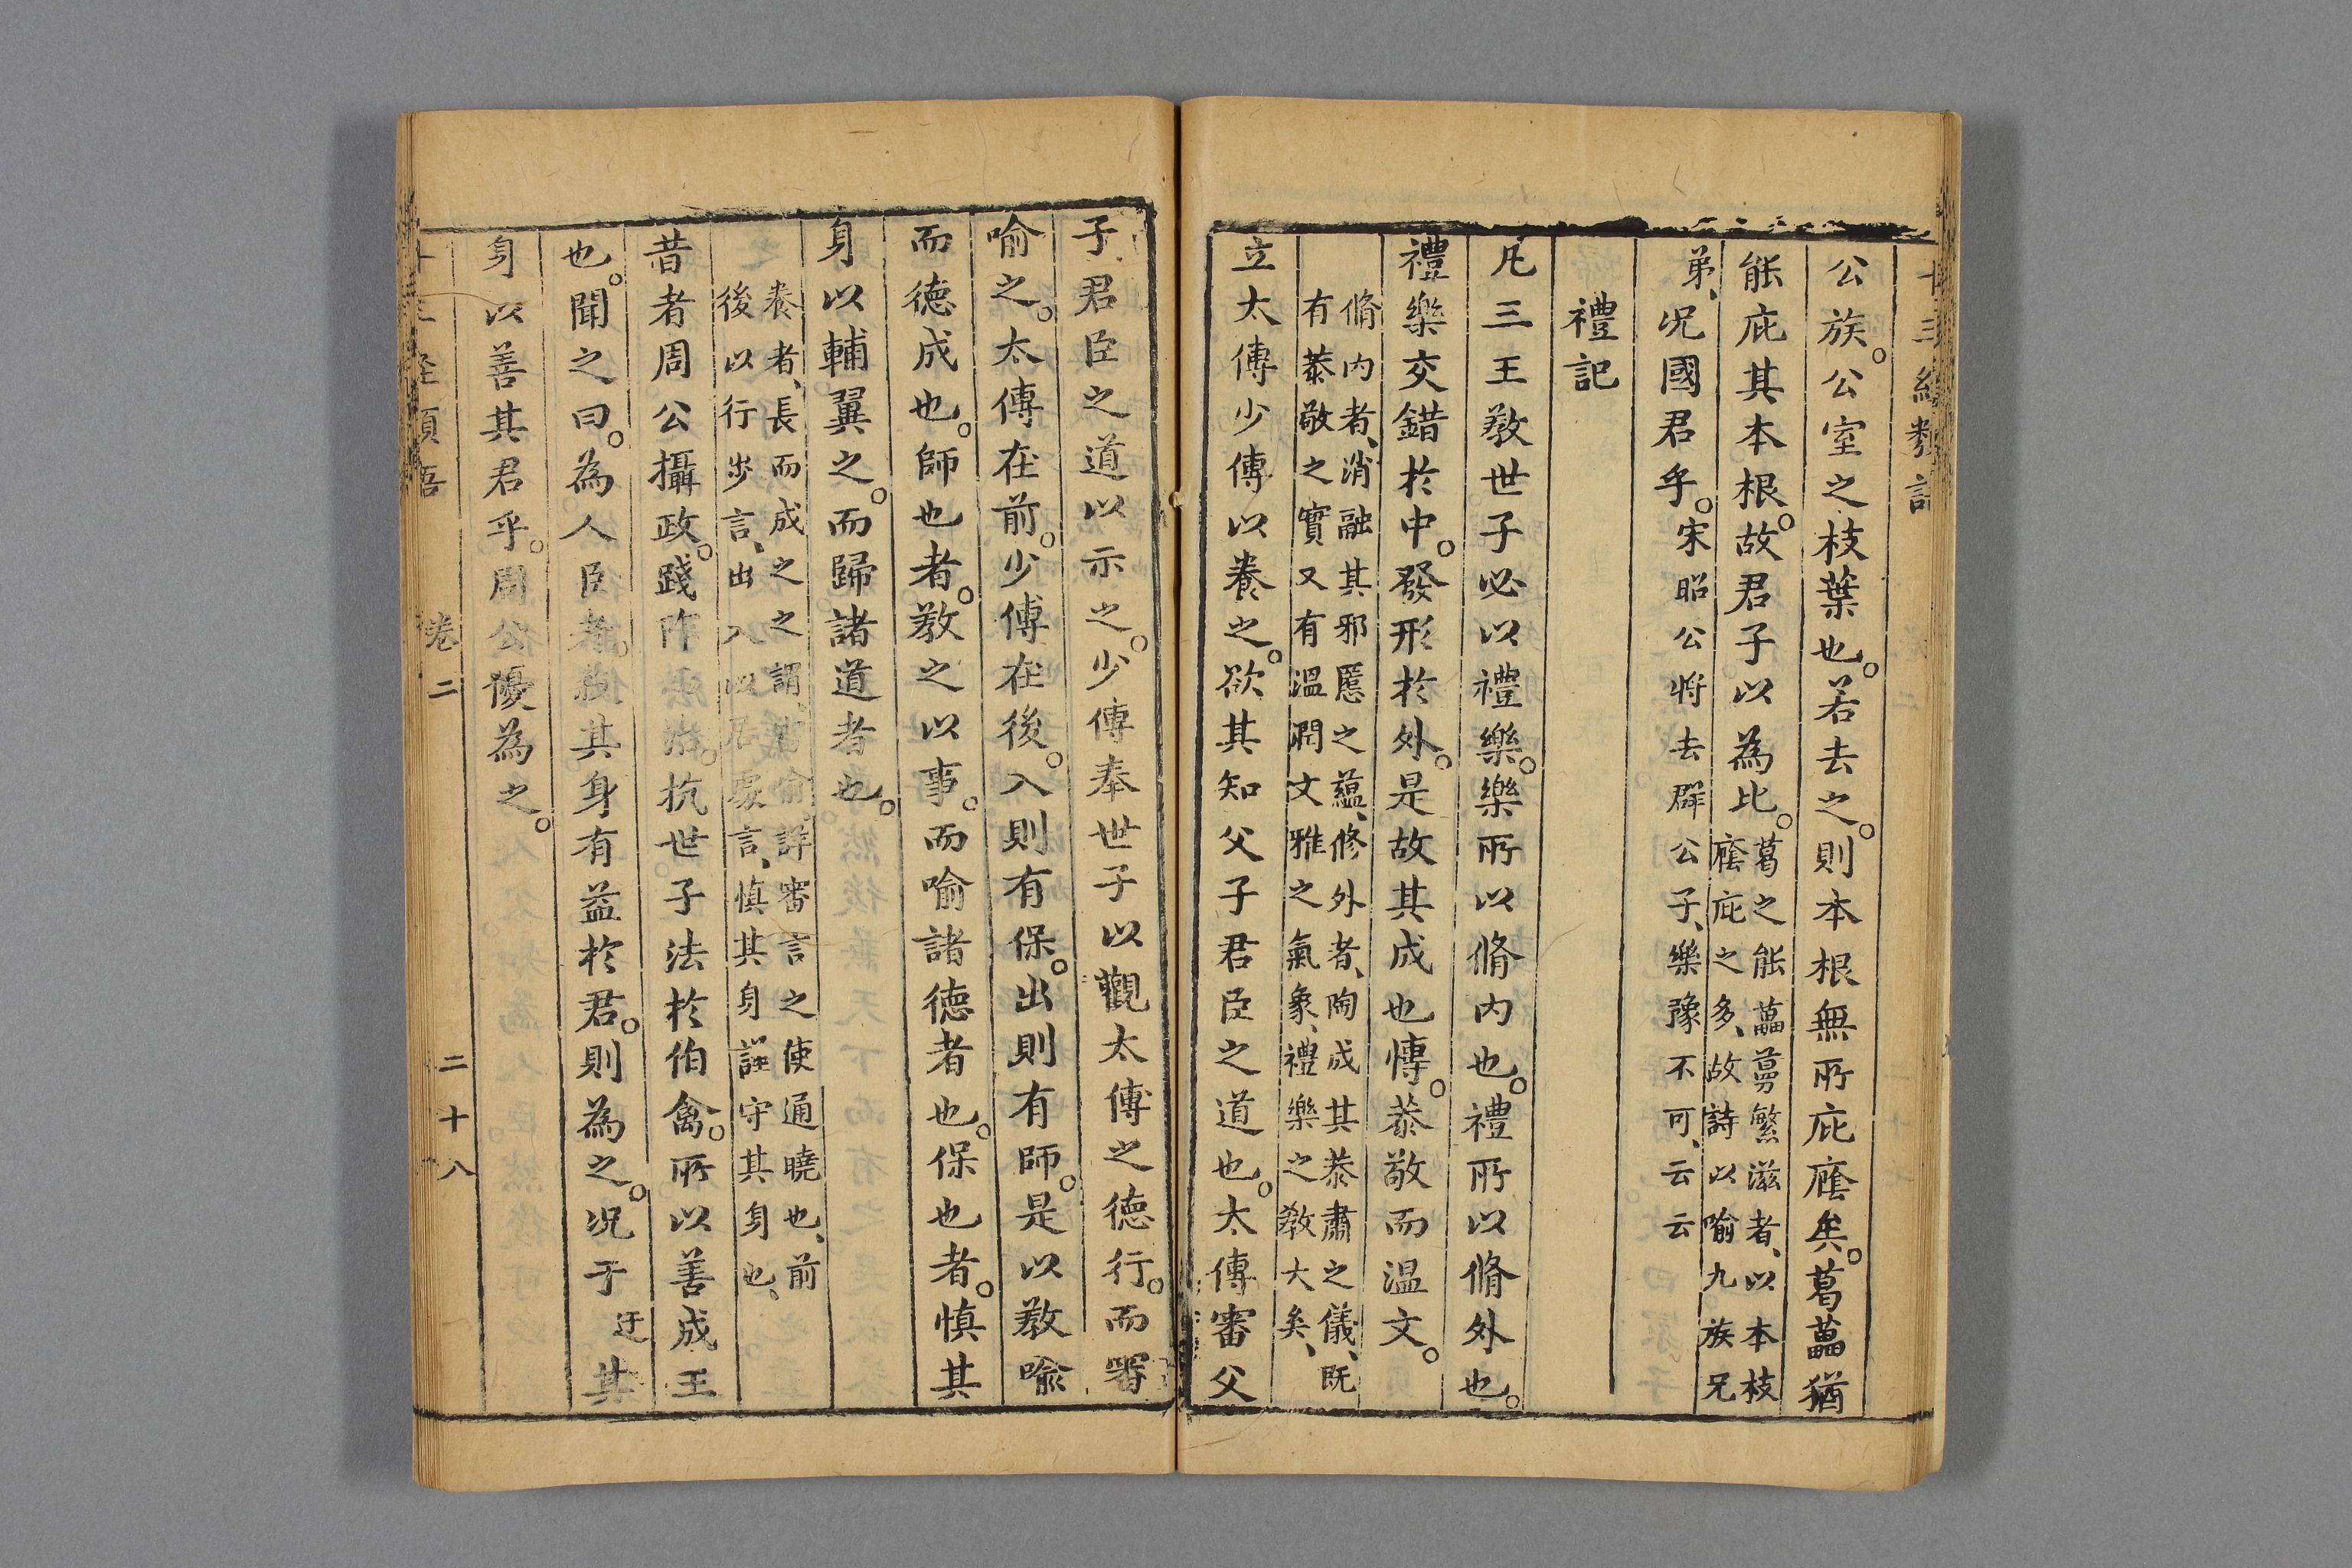 公族。公室之枝葉也。若去之。則本根無所庇廕矣。葛藟猶
能庇其本根。故君子以為比。葛之能藟蔓繁滋者、以本枝
廕庇之多、故詩以喻九族兄
弟、况國君乎。宋昭公將去群公子、樂豫不可、云云
禮記
凡三王教世子必以禮樂。樂所以脩内也。禮所以脩外也。
禮樂交錯於中。發形於外。是故其成也慱。恭敬而溫文。
脩内者、消融其邪慝之蘊、修外者、陶成其恭肅之儀、既
有恭敬之實又有溫潤文雅之氣象、禮樂之教大矣、
立太傅少傅以養之。欲其知父子君臣之道也。太傅審父
子君臣之道以示之。少傅奉世子以觀太傅之德行。而審
喻之。太傅在前。少傅在後。入則有保。出則有師。是以教喩
而德成也。師也者。教之以事。而喻諸德者也。保也者。慎其
身以輔翼之。而歸諸道者也。
養者、長而成之之謂、審喻、詳審言之使通曉也、前
後以行步言、出入以居處言、慎其身謹守其身也、
昔者周公攝政。踐阼治。抗世子法於伯禽。所以善成王
也。聞之曰。為人臣者。殺其身有益於君。則為之。况于迂其
身以善其君乎。周公優為之。
卷二
二十八